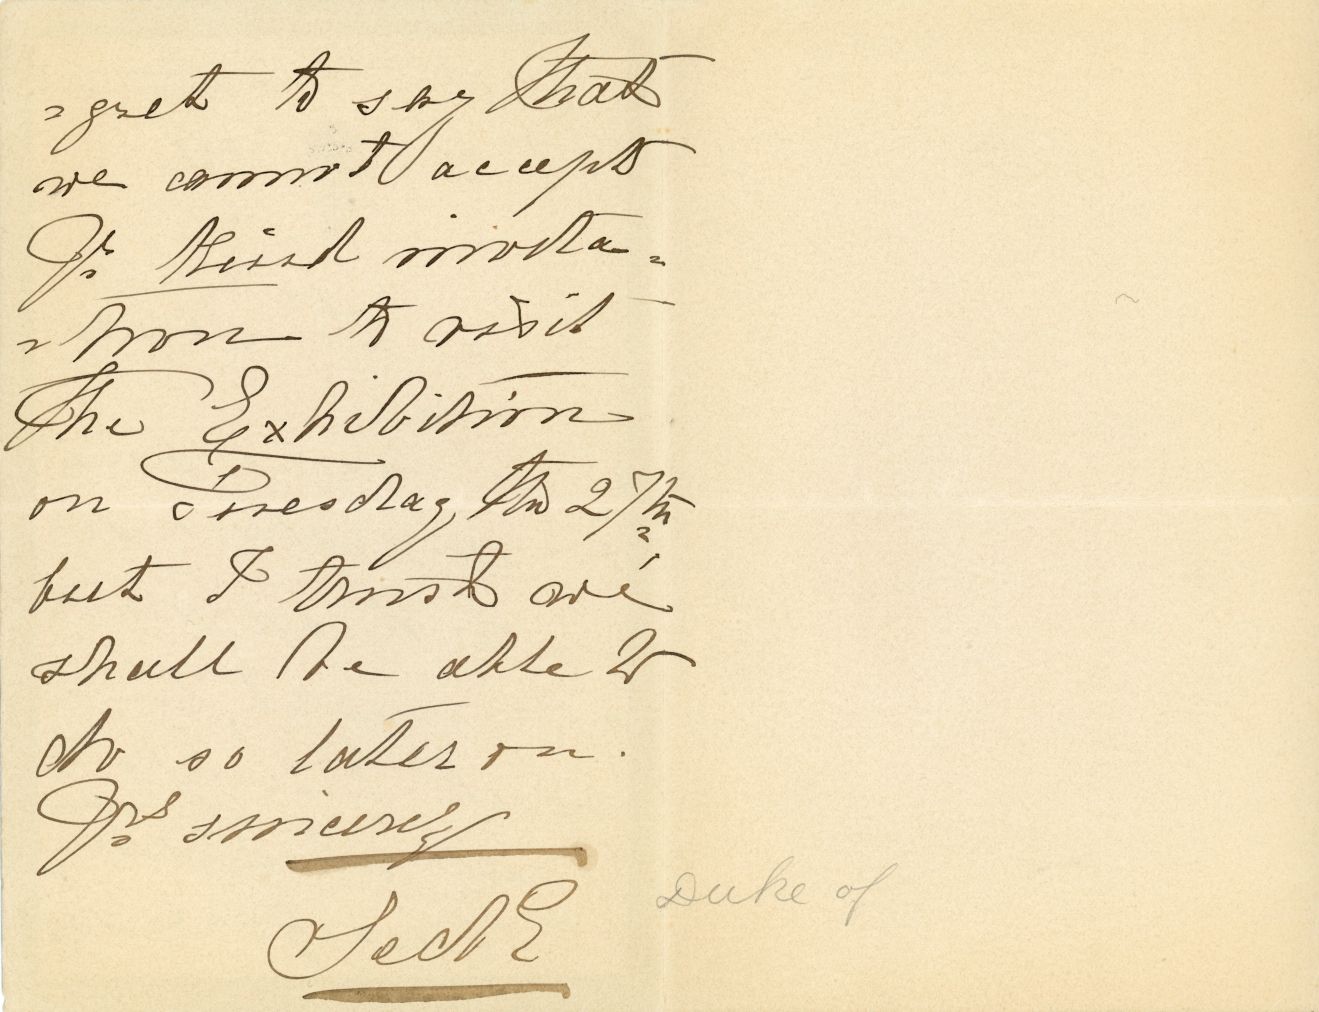 =gret to say that
we cannot accept
Yr kind invita=
=tion to visit
the Exhibition
on Tuesday the 27th
but I trust we
shall be able to
do so later on.
Yrs sincerely
Teck
Duke of